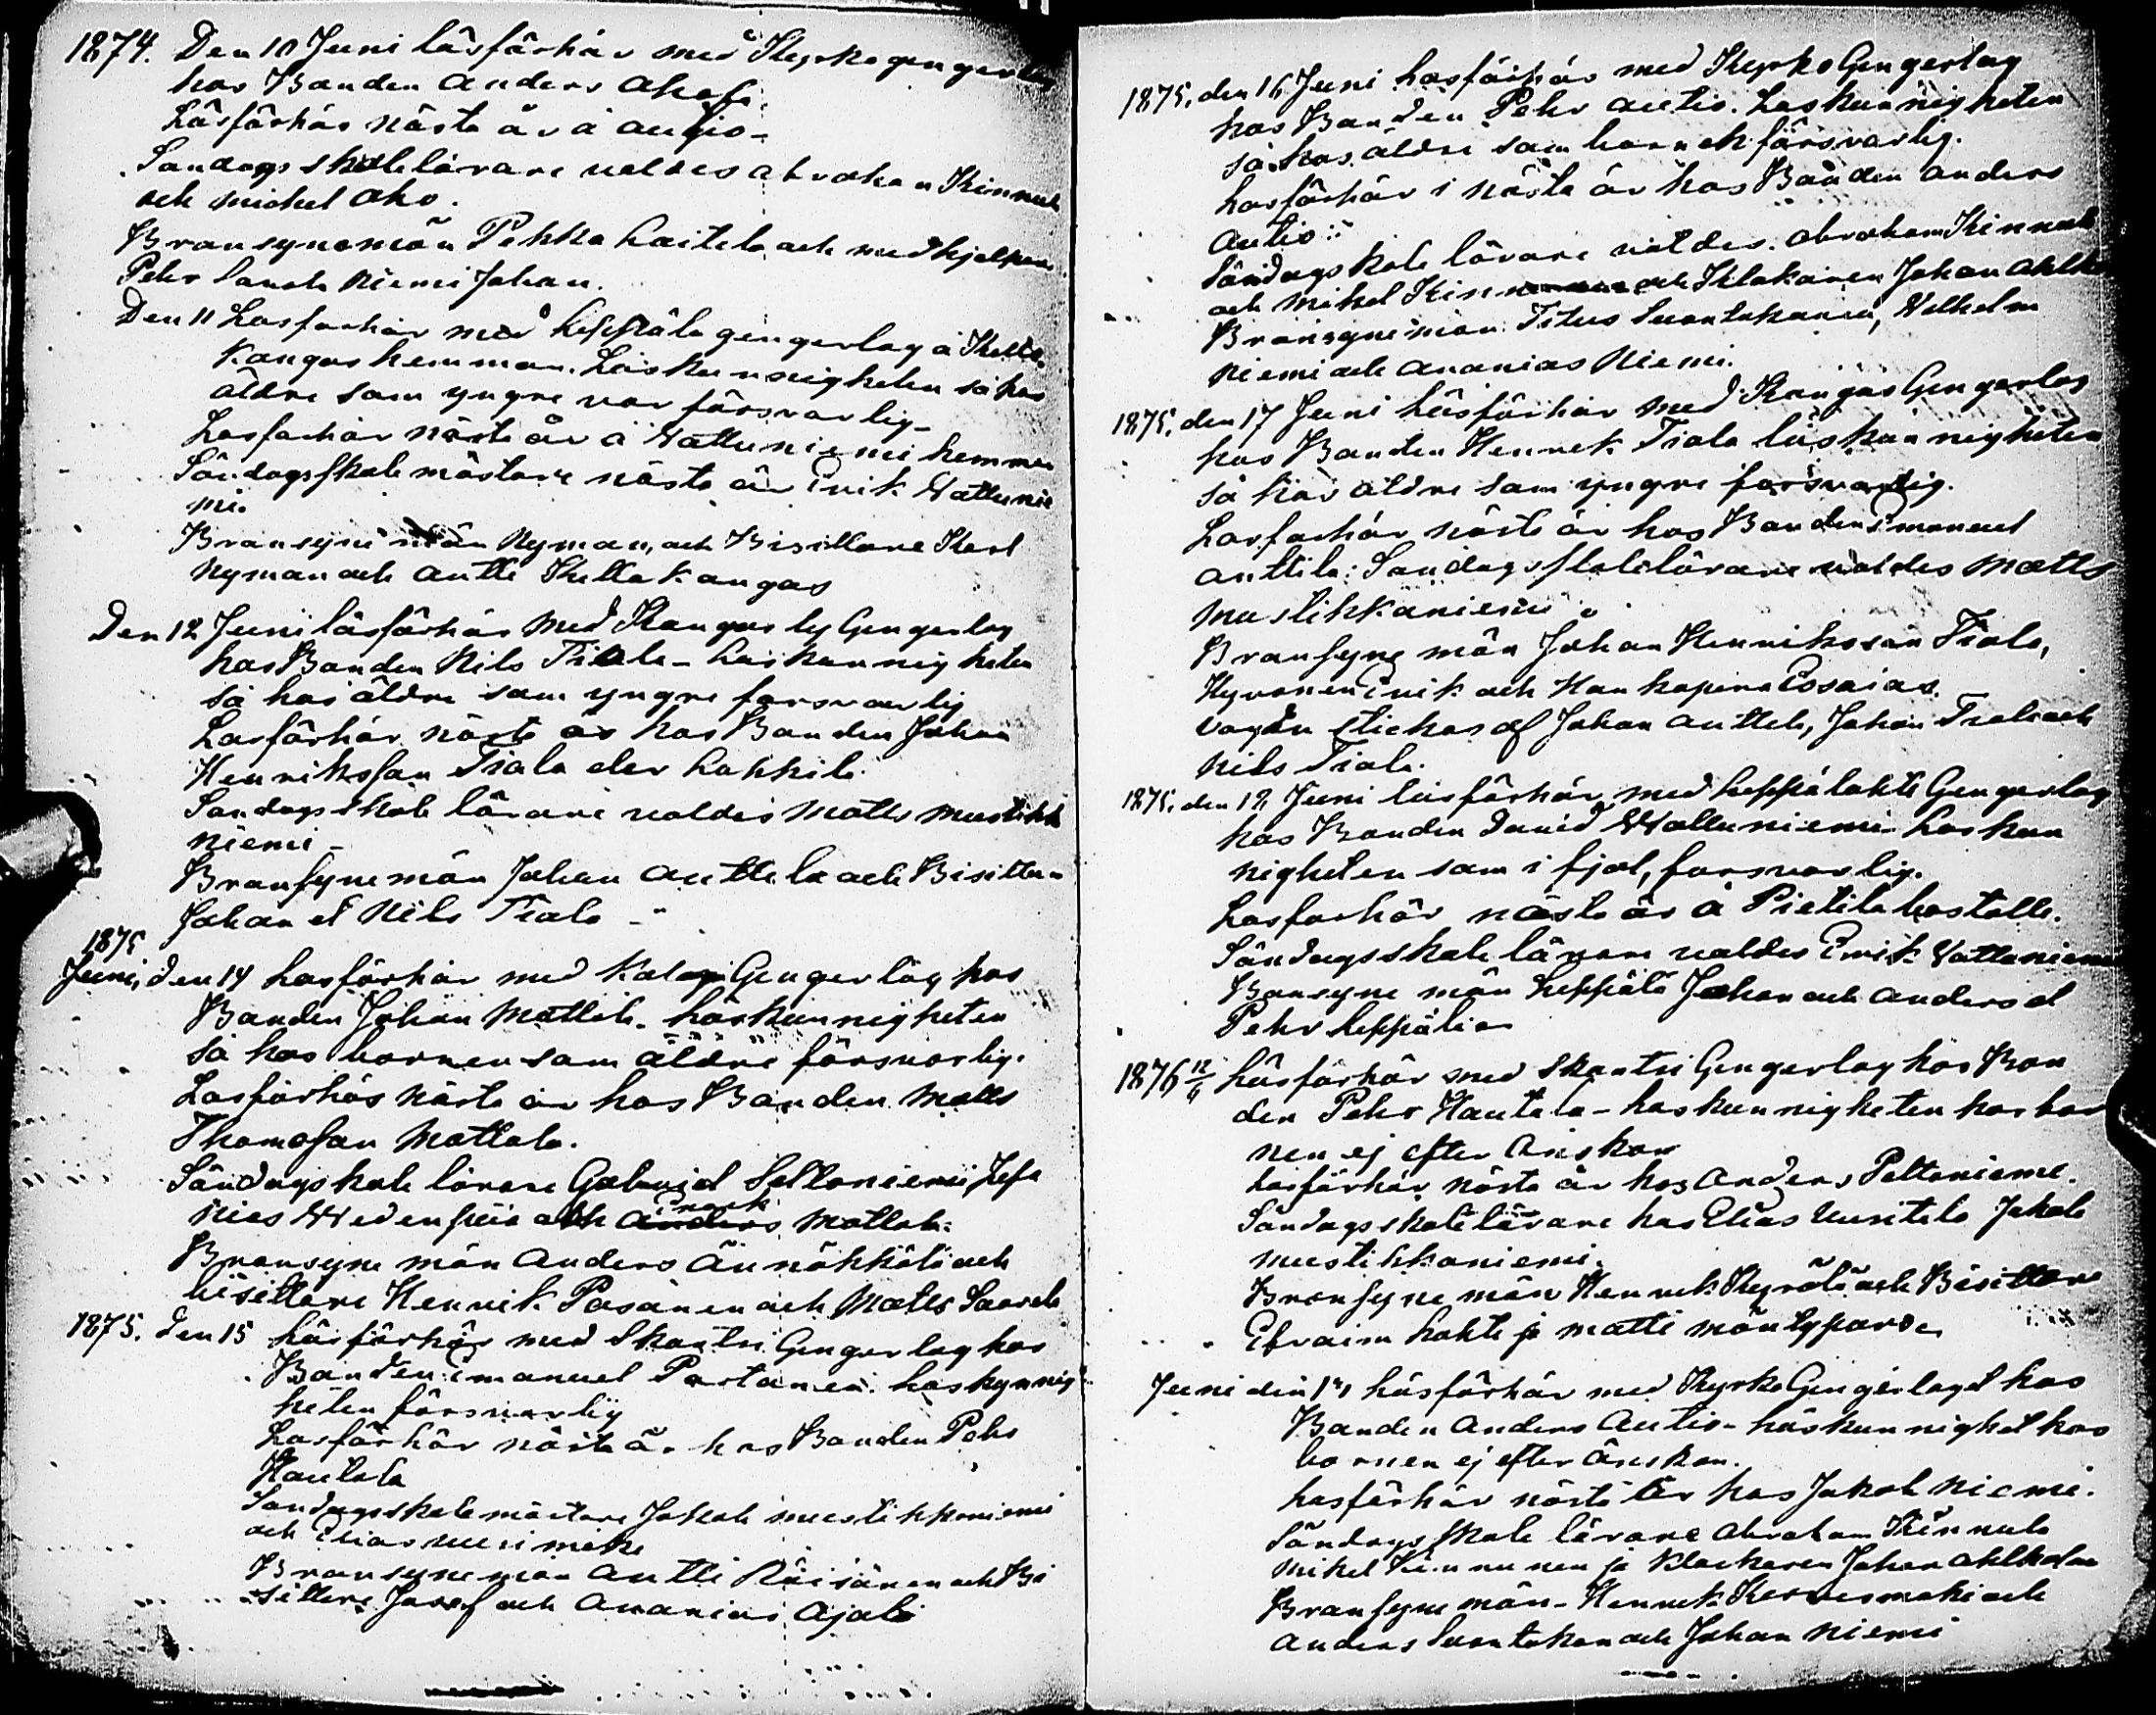 1874. Den 10 Juni läsförhör med Kyrko gengerlag
hos Bonden Anders Aho
Läsförhör nästa år å Autio -
Sondags skolelärare valdes Abraham Kinnul
och Mickel Aho.
Bransynemän Pekka Laitela och medhjelpare
Pehr Niemi Johan.
Den 11 Lasforhör med Leppälä gengerlag å Kello
Kangas hemman. Läskunnigheten så hos
äldre som yngre var försvarlig -
Lasforhör nästa år å Wattuniemi hemman
Söndagsskole mästare nästa år Erik Wattunie
mi.
Bransyne män Nyman, och Bisittare Karl
Nyman och Antti Kellokangas
Den 12 Juni läsförhör med Kangas by Gengerlag
hos Bonden Nils Tiala - Laskunnigheten
så hos äldre som yngre forsvarlig
Lasförhör nästa år hos Bonden Johan
Henriksson Tiala eler Lakkila.
Sondags skole lärare valdes Matts Mustikk
niemi -
Bransynemän Johan Anttila och Bisittare
Johan et Nils Tiala -
1875
Juni, den 14 Lasförhör med Kalaja Gengerlag hos
Bonden Johan Mattila. Läskunnigheten
så hos barnen som äldre försvarlig.
Lasförhör nästa år hos Bonden Matts
Thomasson Mattala.
Söndagskole lärare Gabriel Saltoniemi, Jefa
nias Wedenpää och Anders Mattala.
Bransyne män Anders Äinäkkälä och
bisittare Henrik Pasanen och Matts Saarela
1875. den 15 Läsförhör med Skantsi Gengerlag hos
Bonden Emanuel Partanen. Laskynnig
heten försvarlig
Lasförhör nästa år hos Bonden Pehr
Hautala
Sondagsskole mästare Jakob Mustikkaniemi
och Elias
Bransynemän Antti Räisänen och Bi
sittare Josef och Ananias Ajala
1875. den 16 Juni lasförhör med Kyrko Gengerlag
hos Bonden Pehr Autio. Laskunnigheten
så hos äldre som barn ok försvarlig.
Lasförhör i nästa år hos Bonden Anders
Autio:
Söndagskole lärare valdes. Abraham Kinnula
och Mikel och Klokaren Johan Ahlho
Bransyne män Titus Suontakanen, Wilhelm
Niemi och Ananias Niemi.
1875. den 17 Juni läsförhör med Kangas Gengerlag
hos Bonden Henrik Tiala läskunnigheten
så hos äldre som yngre försvarlig.
Lasforhör nästa år hos Bonden Emanuel
Anttila: Sondagsskolelärare valdes Matts
Mustikkaniemi.
Bransyne män Johan Henriksson Tiala,
Hyvönen Erik och Haukapera Esaias.
Vägen stickas af Johan Anttila, Johan Tiala och
Nils Tiala.
1875. den 18 Juni läsförhör med Leppälakte Gengerlag
hos Bonden David Wattuniemi Laskun
nigheten som i fjol, forsvarlig.
Lasforhör nästa år å Pietila bostalle.
Söndagsskole lärare valdes Erik Wattuniemi
Bransyne män Leppälä Johan och Anders et
Pehr Leppälä
1876 12/6 Läsförhör med Skantsi Gengerlag hos Bon
den Pehr Hautala - Laskunnigheten hos bar
nen ej efter önskan
Lasförhör nästa år hos Anders Peltoniemi.
Söndagsskolelärare hos Elias Uusitalo Jakob
Mustikkaniemi.
Bransyne män Henrik Kyrölä och Bisittare
Efraim Lahti ja Matti Mäntyharo
Juni den 14 Läsförhör med Kyrko Gengerlaget hos
Bonden Anders Autio - Läskunnighet hos
barnen ej efter önskan.
Lasförhör nästa år hos Jakob Niemi.
Söndagsskole lärare Abraham Kinnula
Mikel Kinnunen ja Klockaren Johan Ahlholm
Bransyne män - Henrik Kervesmäki och
Anders Suontakan och Johan Niemi